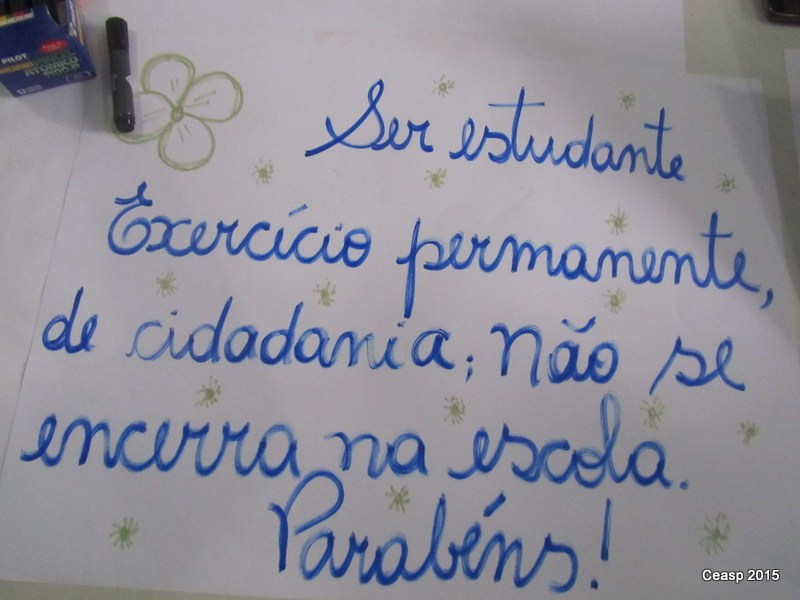 PILOT
Ser estudante
Exercício permanente,
de cidadania; não se
encerra na escola.
Parabéns!
Ceasp 2015